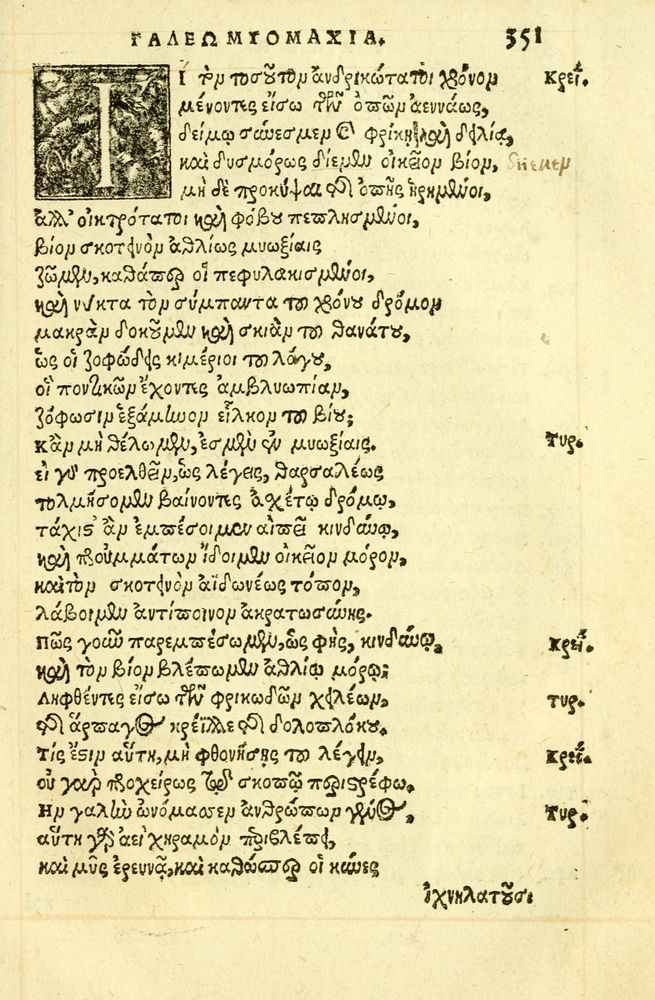 ΓΑΛΕΩΜΥΟΜΑΧΙΑ. 351
Τί τὸν τοσοῦτον ἀνδρικώτατοι χρόνον Κρεΐ.
μένοντες εἴσω τῶν ὀπῶν ἀεννάως,
δείμῳ σύνεσμεν καὶ φρίκῃ καὶ δειλίᾳ,
καὶ δυσμόρως διέμεν οἰκεῖον βίον, διῆμεν
μὴ δὲ προκύψαι τῆς ὀπῆς ᾑρημένοι,
ἀλλ' οἰκτρότατοι καὶ φόβου πεπλησμένοι,
βίον σκοτεινὸν ἀθλίως μυωξίαις
ζῶμεν, καθάπερ οἱ πεφυλακισμένοι,
καὶ νύκτα τὸν σύμπαντα τοῦ χρόνου δρόμον
μακρὰν δοκοῦμεν καὶ σκιὰν τοῦ θανάτου,
ὡς οἱ ζοφώδεις κιμέριοι τοῦ λόγου,
οἳ ποντικῶν ἔχοντες ἀμβλυωπίαν,
ζόφωσιν ἑξάμηνον εἷλκον τοῦ βίου;
Κἂν μὴ θέλωμεν, ἐσμὲν ἐν μυωξίαις. Τυρ.
εἰ γὰρ προελθεῖν, ὡς λέγεις, θαρσαλέως
τολμήσομεν βαίνοντες ἀχέτῳ δρόμῳ,
τάχιστ' ἂν ἐμπέσοιμεν αἰπεῖ κινδύνῳ,
καὶ πρὸ ὀμμάτων ἴδοιμεν οἰκεῖον μόρον,
καὶ τὸν σκοτεινὸν ἀϊδωνέως τόπον,
λάβοιμεν ἀντίποινον ἀκρατοσύνης.
Πῶς γοῦν παρεμπέσωμεν, ὡς φῂς, κινδύνῳ, Κρεΐ.
καὶ τὸν βίον βλέπωμεν ἀθλίῳ μόρῳ;
Ληφθέντες εἴσω τῶν φρικωδῶν χειλέων, τυρ.
τῆς ἅρπαγος κρεΐλλε τῆς δολοπλόκου.
Τίς ἐστιν αὕτη, μὴ φθονήσῃς τοῦ λέγειν, Κρεΐ.
οὐ γὰρ προχείρως τῷ σκοπῷ περιστρέφω.
Ην γαλῆν ὠνόμασεν ἀνθρώπων γένος, Τυρ.
αὕτη γὰρ ἀεὶ χηραμὸν περιβλέπει,
καὶ μῦς ἐρευνᾷ, καὶ καθώσπερ οἱ κύνες
ἰχνηλατοῦσι